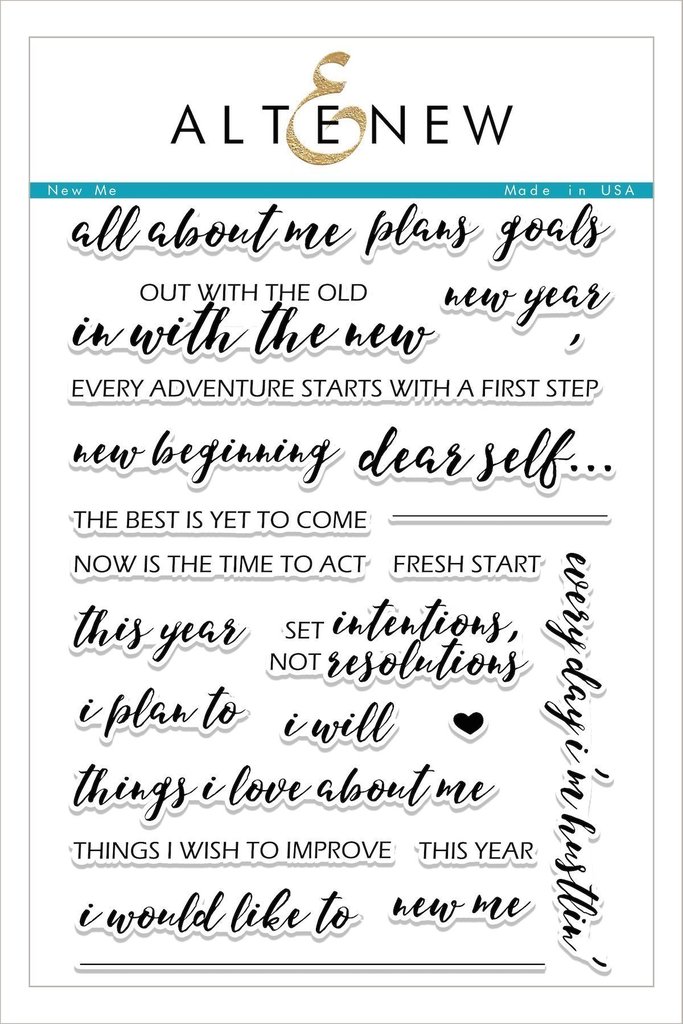 ALTENEW
New Me Made in USA
all about me plans goals
OUT WITH THE OLD new year
in with the new ,
EVERY ADVENTURE STARTS WITH A FIRST STEP
new beginning dear self...
THE BEST IS YET TO COME
NOW IS THE TIME TO ACT FRESH START
everyday i'm hustlin'
this year SET intentions,
NOT resolutions
i plan to i will
things i love about me
THINGS I WISH TO IMPROVE THIS YEAR
i would like to new me